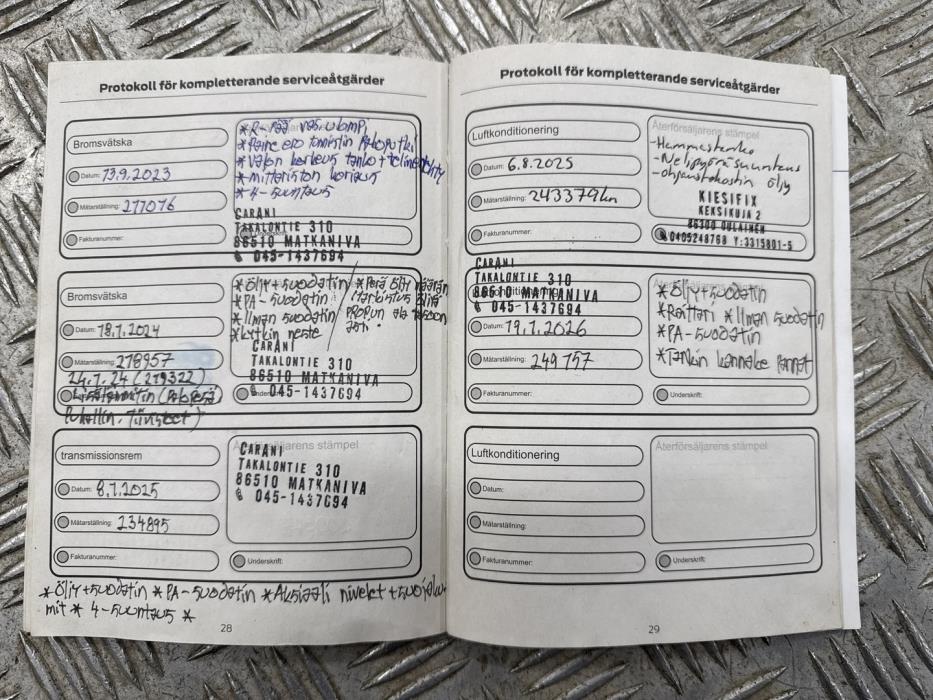 Protokoll för kompletterande serviceåtgärder
Bromsvätska
Datum: 13.9.2023
Mätarställning: 217076
Fakturanummer:
* Paine ero tunnistin Pakoputki
* Valon korkeus tanko +
* mittariston korjaus
* 4-suuntaus
CARANI
TAKALONTIE 310
86510 MATKANIVA
045-1437694
Bromsvätska
Datum: 18.1.2024
Mätarställning: 218957
24.1.24 (219322)
Fakturanummer:
* Öljy + suodatin
* PA-suodatin
* Ilman suodatin
* Kytkin neste
* Perä öljy määrän
tarkistus
CARANI
TAKALONTIE 310
86510 MATKANIVA
045-1437694
transmissionsrem
Datum: 8.1.2025
Mätarställning: 234895
Fakturanummer:
Återförsäljarens stämpel
CARANI
TAKALONTIE 310
86510 MATKANIVA
045-1437694
Underskrift:
* Öljy + suodatin * PA-suodatin * Aksiaali nivelet + suojaku-
mit * 4-suuntaus *
28
Protokoll för kompletterande serviceåtgärder
Luftkonditionering
Datum: 6.8.2025
Mätarställning: 243379km
Fakturanummer:
Återförsäljarens stämpel
- Hammastanko
- Nelipyöräsuuntaus
- ohjaustehostin öljy
KIESIFIX
KEKSIKUJA 2
86300 OULAINEN
0405248768 Y:3315801-5
CARANI
TAKALONTIE 310
86510 MATKANIVA
045-1437694
Datum: 19.1.2026
Mätarställning: 249757
Fakturanummer:
* Öljy + suodatin
* Raitari * Ilman suodatin
* PA-suodatin
* Tankin kannake pannat
Underskrift:
Luftkonditionering
Datum:
Mätarställning:
Fakturanummer:
Återförsäljarens stämpel
Underskrift:
29